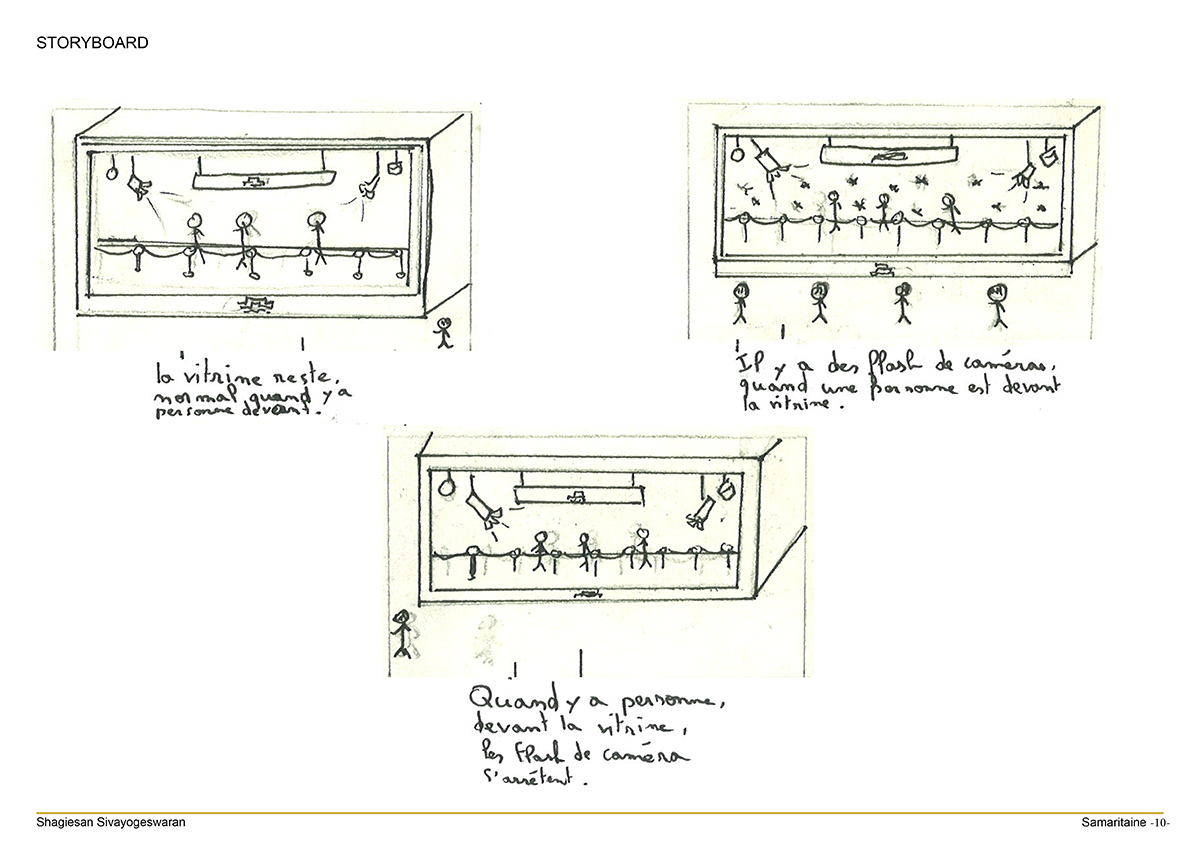 STORYBOARD
la vitrine reste,
normal quand y a
personne devant.
Il y a des flash de caméras,
quand une personne est devant
la vitrine.
Quand y a personne,
devant la vitrine,
les flash de caméra
s'arrêtent.
Shagiesan Sivayogeswaran
Samaritaine -10-